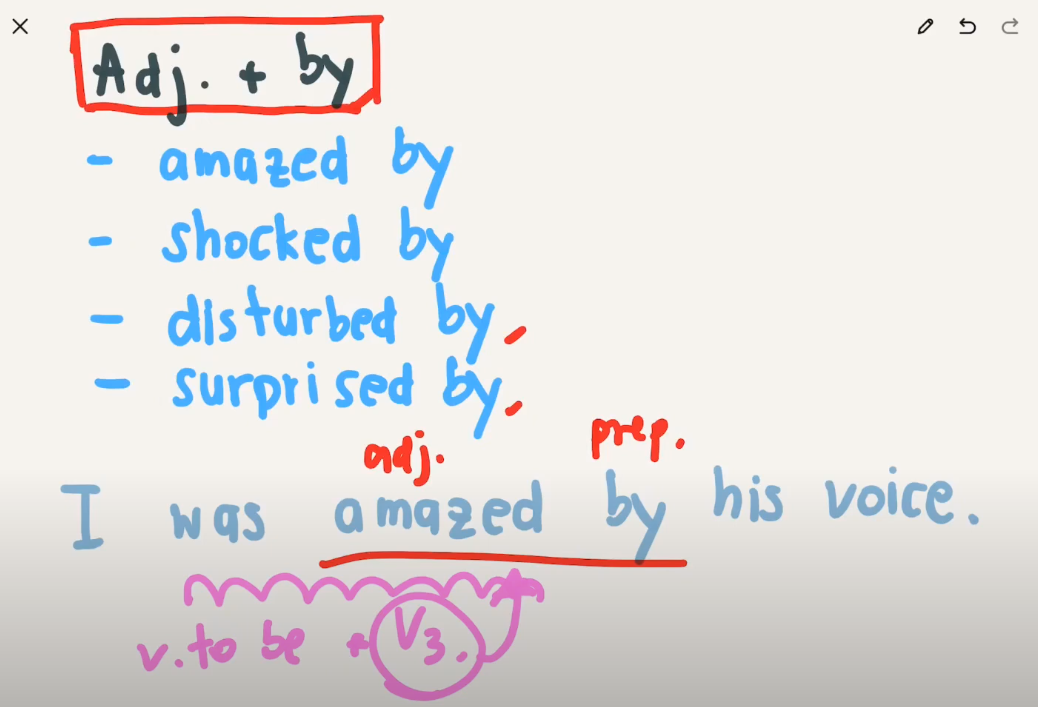 Adj. + by
- amazed by
- shocked by
- disturbed by
- surprised by
adj. prep.
I was amazed by his voice.
v. to be + V3.